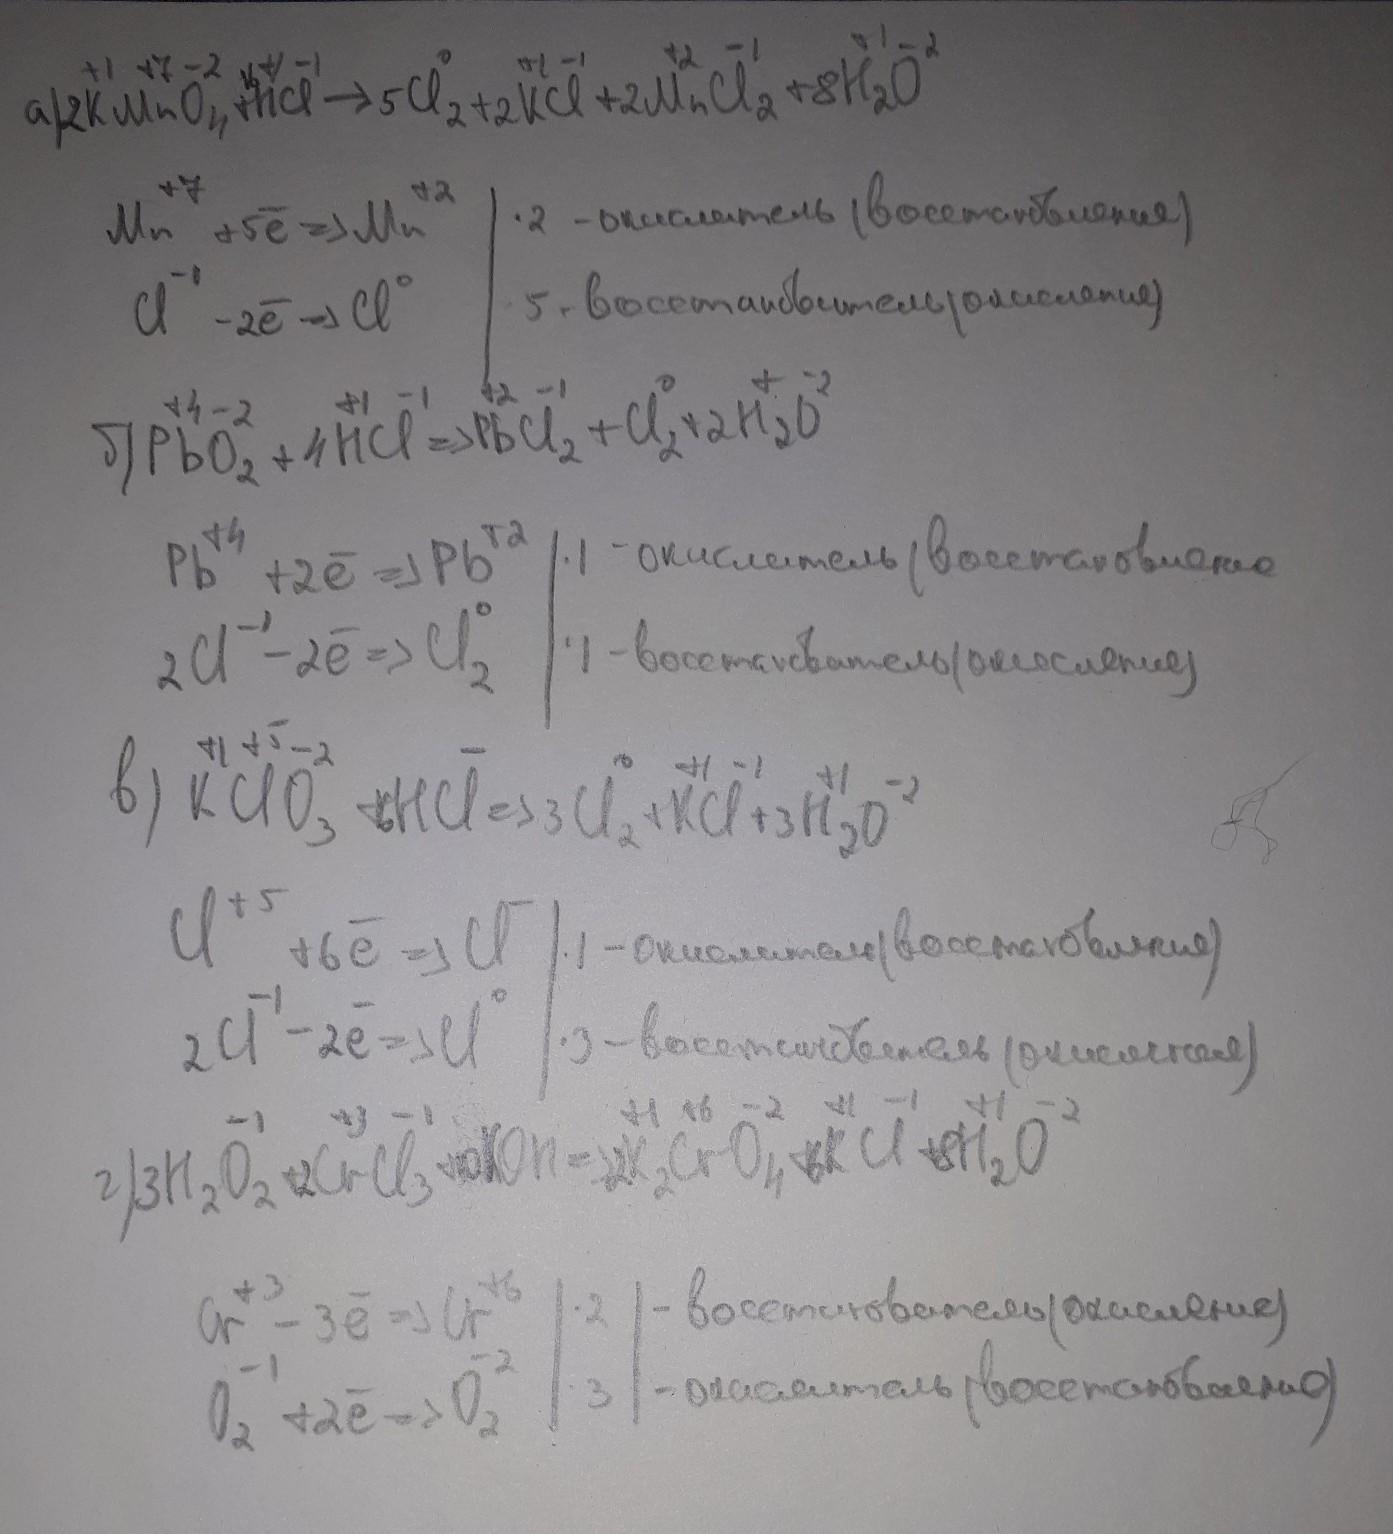 а) 2K⁺¹Mn⁺⁷O₄⁻² + H⁺¹Cl⁻¹ → 5Cl₂⁰ + 2K⁺¹Cl⁻¹ + 2Mn⁺²Cl₂⁻¹ + 8H₂⁺¹O⁻²
Mn⁺⁷ + 5ē => Mn⁺² | ·2 - окислитель (восстановления)
Cl⁻¹ - 2ē => Cl⁰ | 5 - восстановитель (окисления)
б) Pb⁺⁴O₂⁻² + 4H⁺¹Cl⁻¹ => Pb⁺²Cl₂⁻¹ + Cl₂⁰ + 2H₂⁺O⁻²
Pb⁺⁴ + 2ē => Pb⁺² | ·1 - окислитель (восстановление
2Cl⁻¹ - 2ē => Cl₂⁰ | ·1 - восстановитель (окисление)
в) K⁺¹Cl⁺⁵O₃⁻² + 6HCl⁻ => 3Cl₂⁰ + K⁺¹Cl⁻¹ + 3H₂⁺¹O⁻²
Cl⁺⁵ + 6ē => Cl⁻ | ·1 - окислитель (восстановления)
2Cl⁻¹ - 2ē => Cl⁰ | ·3 - восстановитель (окисления)
г) 3H₂O₂⁻¹ + 2Cr⁺³Cl₃⁻¹ + KOH => 2K₂⁺¹Cr⁺⁶O₄⁻² + 6K⁺¹Cl⁻¹ + 8H₂⁺¹O⁻²
Cr⁺³ - 3ē => Cr⁺⁶ | ·2 | - восстановитель (окисление)
O₂⁻¹ + 2ē => O₂⁻² | ·3 | - окислитель (восстановление)